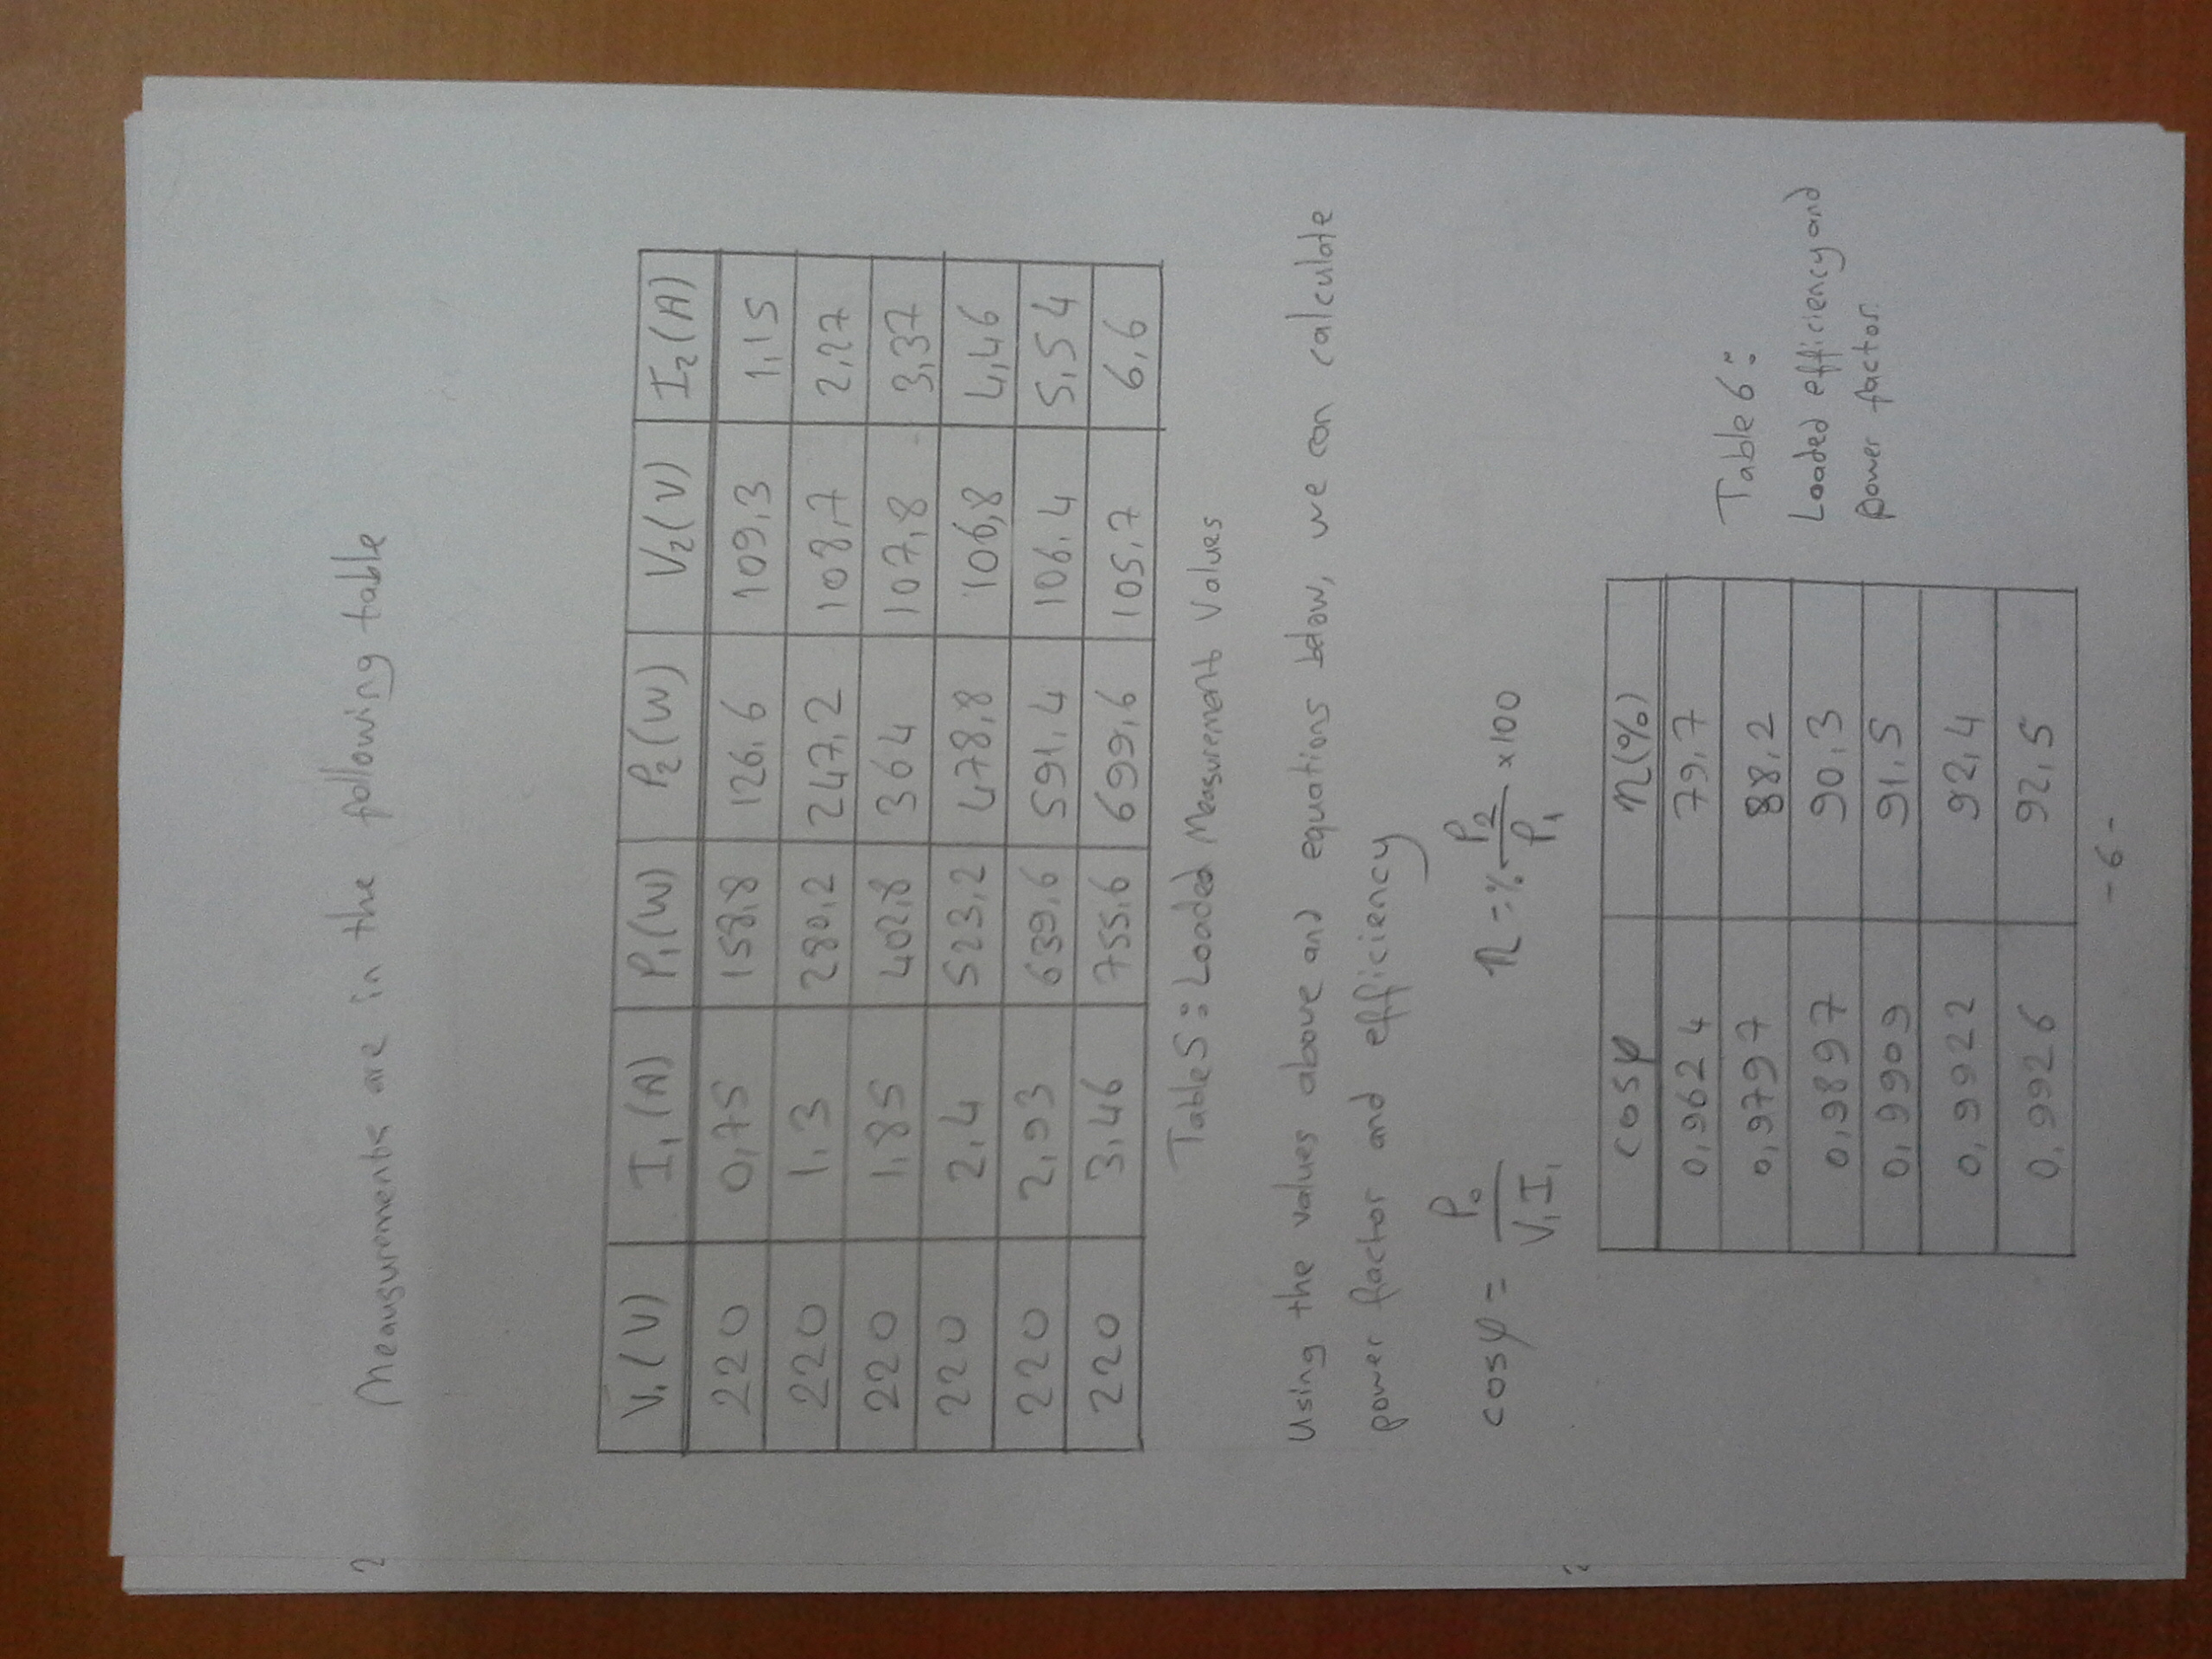 Meausurements are in the following table
V₁(V) I₁(A) P₁(W) P₂(W) V₂(V) I₂(A)
220 0,75 158,8 126,6 109,3 1,15
220 1,3 280,2 247,2 108,7 2,27
220 1,85 402,8 364 107,8 3,37
220 2,4 523,2 478,8 106,8 4,46
220 2,93 639,6 591,4 106,4 5,54
220 3,46 755,6 699,6 105,7 6,6
Table5: Loaded Measurement Values
Using the values above and equations below, we can calculate
power factor and efficiency
cosφ = P₀/V₁I₁ η = % P₂/P₁ ×100
cosφ η(%)
0,9624 79,7
0,9797 88,2
0,9897 90,3
0,9909 91,5
0,9922 92,4
0,9926 92,5
Table 6:
Loaded efficiency and
power factor
-6-